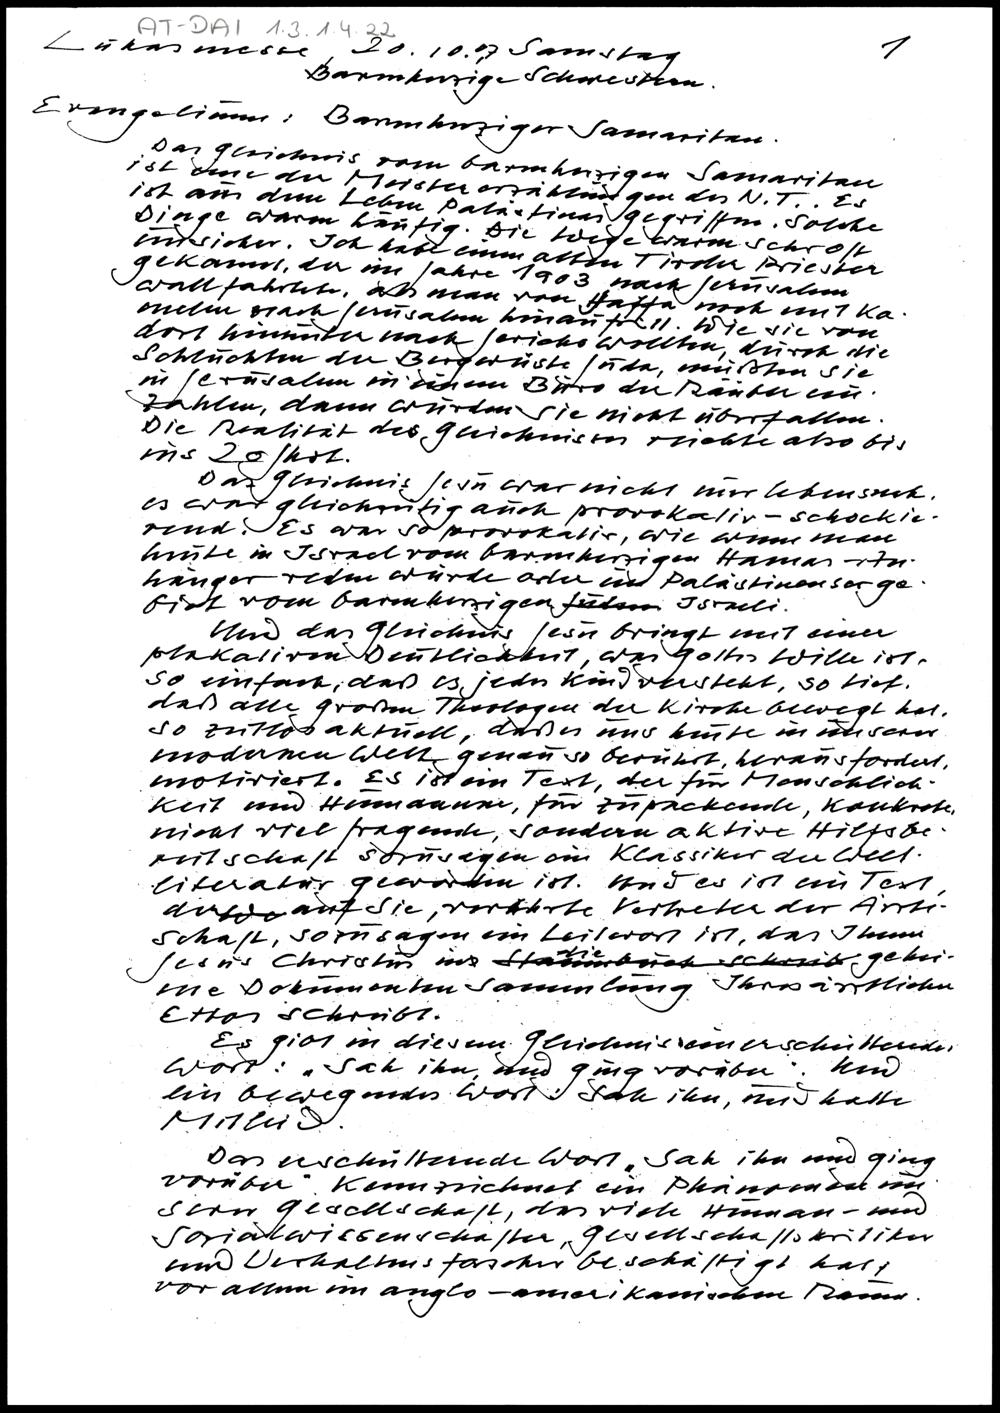 AT-DAI 1.3.1.4.22
Lukasmesse, 20.10.07 Samstag 1
Barmherzige Schwestern.
Evangelium: Barmherziger Samaritan.
Das Gleichnis vom barmherzigen Samaritan
ist eine der Meistererzählungen des N.T.. Es
ist aus dem Leben Palästinas gegriffen. Solche
Dinge waren häufig. Die Wege waren schroff
unsicher. Ich habe einen alten Tiroler Priester
gekannt, der im Jahre 1903 nach Jerusalem
wallfahrtete, als man von Haffa noch mit Ka-
melen nach Jerusalem hinaufritt. Wie sie von
dort hinunter nach Jericho wollten, durch die
Schluchten der Bergwüste Juda, mußten sie
in Jerusalem in einem Büro der Räuber ein-
zahlen, dann würden sie nicht überfallen.
Die Realität des Gleichnisses reichte also bis
ins 20 Jhdt.
Das Gleichnis Jesu war nicht nur lebensnah.
es war gleichzeitig auch provokativ – schockie-
rend. Es war so provokativ, wie wenn man
heute in Israel vom barmherzigen Hamas-An-
hänger reden würde oder im Palästinenserge-
biet vom barmherzigen Juden Israeli.
Und das Gleichnis Jesu bringt mit einer
plakativen Deutlichkeit, was Gottes Wille ist.
So einfach, daß es jedes Kind versteht, so tief.
daß alle großen Theologen der Kirche bewegt hat.
so zeitlos aktuell, daß es uns heute in unserer
modernen Welt genau so berührt, herausfordert,
motiviert. Es ist ein Text, der für Menschlich-
keit und Humanität, für zupackende, konkrete,
nicht viel fragende, sondern aktive Hilfsbe-
reitschaft sozusagen ein Klassiker der Welt-
literatur geworden ist. Und es ist ein Text,
der auf Sie, verehrte Vertreter der Ärzte-
schaft, sozusagen ein Leitwort ist, das Ihnen
Jesus Christus ins Stammbuch schreib die gehei-
me Dokumenten Sammlung Ihres ärztlichen
Ethos schreibt.
Es gibt in diesem Gleichnis ein erschütterndes
Wort: „Sah ihn, und ging vorüber". Und
ein bewegendes Wort: Sah ihn, und hatte
Mitleid.
Das erschütternde Wort „Sah ihn und ging
vorüber" kennzeichnet ein Phänomen un-
serer Gesellschaft, das viele Human- und
Sozialwissenschafter, Gesellschaftskritiker
und Verhaltensforscher beschäftigt hat,
vor allem im anglo-amerikanischen Raum.